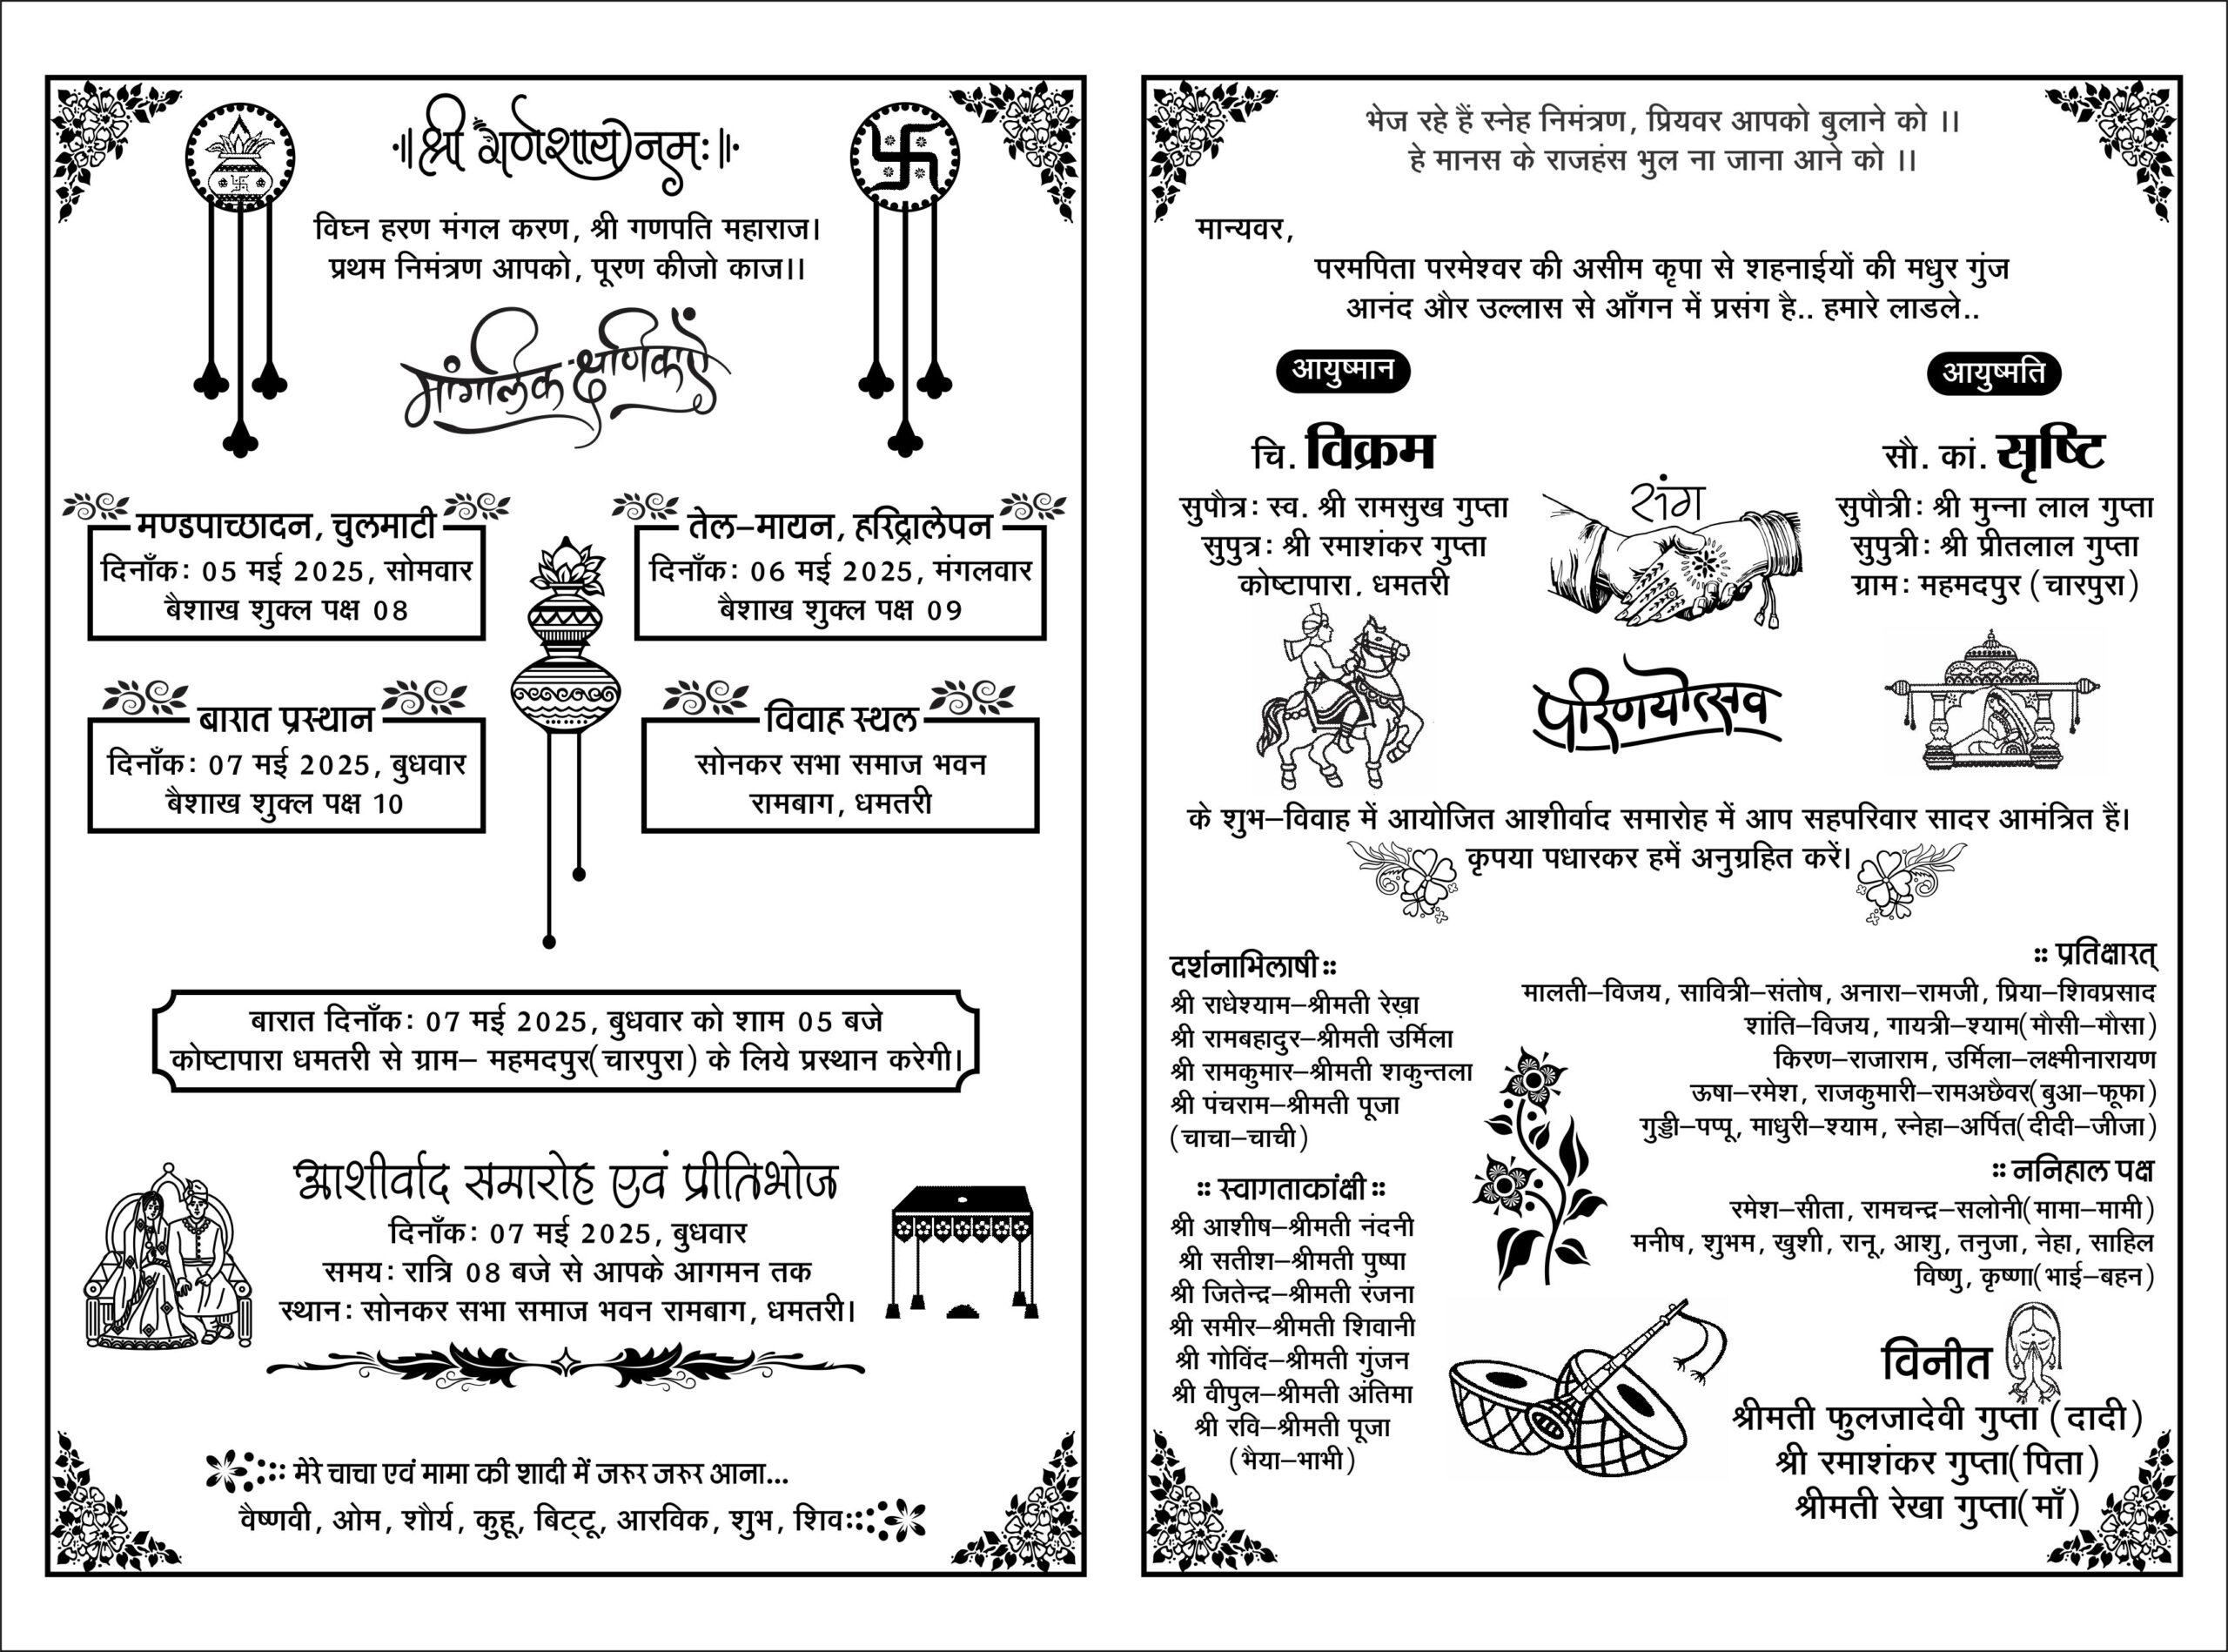 ॥श्री गणेशाय नमः॥
विघ्न हरण मंगल करण, श्री गणपति महाराज।
प्रथम निमंत्रण आपको, पूरण कीजो काज।।
मांगलिक क्षणिकाऐं
मण्डपाच्छादन, चुलमाटी
दिनाँक: 05 मई 2025, सोमवार
बैशाख शुक्ल पक्ष 08
तेल–मायन, हरिद्रालेपन
दिनाँक: 06 मई 2025, मंगलवार
बैशाख शुक्ल पक्ष 09
बारात प्रस्थान
दिनाँक: 07 मई 2025, बुधवार
बैशाख शुक्ल पक्ष 10
विवाह स्थल
सोनकर सभा समाज भवन
रामबाग, धमतरी
बारात दिनाँक: 07 मई 2025, बुधवार को शाम 05 बजे
कोष्टापारा धमतरी से ग्राम– महमदपुर(चारपुरा) के लिये प्रस्थान करेगी।
आशीर्वाद समारोह एवं प्रीतिभोज
दिनाँक: 07 मई 2025, बुधवार
समय: रात्रि 08 बजे से आपके आगमन तक
स्थान: सोनकर सभा समाज भवन रामबाग, धमतरी।
मेरे चाचा एवं मामा की शादी में जरुर जरुर आना...
वैष्णवी, ओम, शौर्य, कुहू, बिट्टू, आरविक, शुभ, शिव
भेज रहे हैं स्नेह निमंत्रण, प्रियवर आपको बुलाने को ।।
हे मानस के राजहंस भुल ना जाना आने को ।।
मान्यवर,
परमपिता परमेश्वर की असीम कृपा से शहनाईयों की मधुर गुंज
आनंद और उल्लास से आँगन में प्रसंग है.. हमारे लाडले..
आयुष्मान
चि. विक्रम
सुपौत्र: स्व. श्री रामसुख गुप्ता
सुपुत्र: श्री रमाशंकर गुप्ता
कोष्टापारा, धमतरी
संग
आयुष्मति
सौ. कां. सृष्टि
सुपौत्री: श्री मुन्ना लाल गुप्ता
सुपुत्री: श्री प्रीतलाल गुप्ता
ग्राम: महमदपुर (चारपुरा)
परिणयोत्सव
के शुभ–विवाह में आयोजित आशीर्वाद समारोह में आप सहपरिवार सादर आमंत्रित हैं।
कृपया पधारकर हमें अनुग्रहित करें।
दर्शनाभिलाषी ::
श्री राधेश्याम–श्रीमती रेखा
श्री रामबहादुर–श्रीमती उर्मिला
श्री रामकुमार–श्रीमती शकुन्तला
श्री पंचराम–श्रीमती पूजा
(चाचा–चाची)
:: स्वागताकांक्षी ::
श्री आशीष–श्रीमती नंदनी
श्री सतीश–श्रीमती पुष्पा
श्री जितेन्द्र–श्रीमती रंजना
श्री समीर–श्रीमती शिवानी
श्री गोविंद–श्रीमती गुंजन
श्री वीपुल–श्रीमती अंतिमा
श्री रवि–श्रीमती पूजा
(भैया–भाभी)
:: प्रतिक्षारत्
मालती–विजय, सावित्री–संतोष, अनारा–रामजी, प्रिया–शिवप्रसाद
शांति–विजय, गायत्री–श्याम(मौसी–मौसा)
किरण–राजाराम, उर्मिला–लक्ष्मीनारायण
ऊषा–रमेश, राजकुमारी–रामअछैवर(बुआ–फूफा)
गुड्डी–पप्पू, माधुरी–श्याम, स्नेहा–अर्पित(दीदी–जीजा)
:: ननिहाल पक्ष
रमेश–सीता, रामचन्द्र–सलोनी(मामा–मामी)
मनीष, शुभम, खुशी, रानू, आशु, तनुजा, नेहा, साहिल
विष्णु, कृष्णा(भाई–बहन)
विनीत
श्रीमती फुलजादेवी गुप्ता (दादी)
श्री रमाशंकर गुप्ता(पिता)
श्रीमती रेखा गुप्ता(माँ)